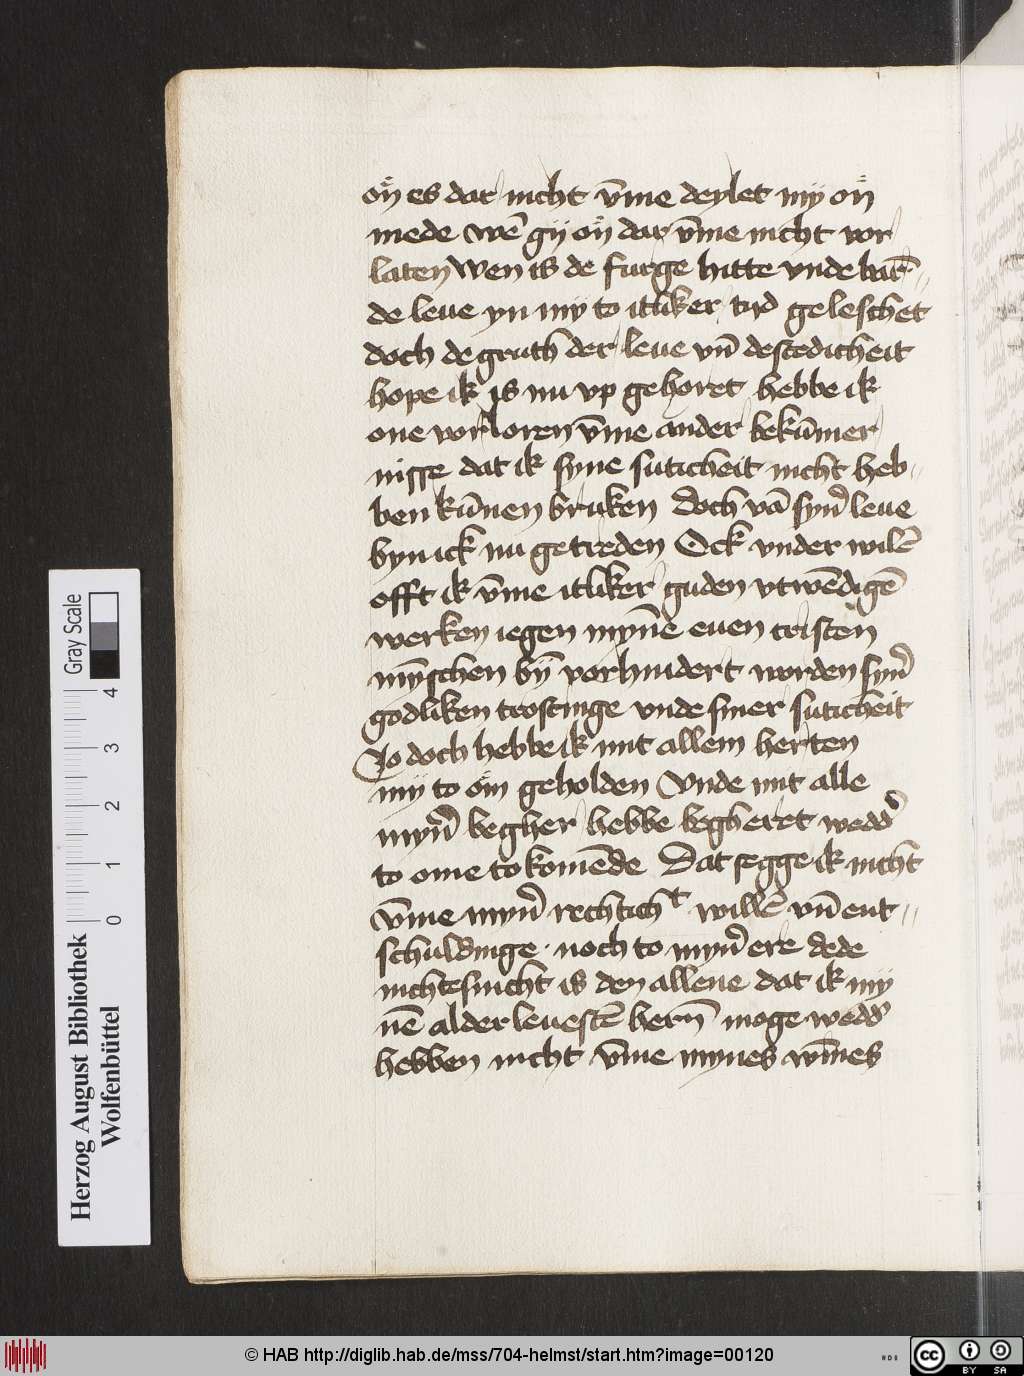 oň es dar nicht v̄me deylet mÿ oň
mede wē gÿ oň dar v̄me nicht vor
laten Wen is de furge hitte vnde barn̄
de leue yn mÿ to itliker tijd geleschet
doch de gruth der leue vn̄ destedicheit
hope ik is nu vp gehoret hebbe ik
one vorloren v̄me ander bekūmer
nisse dat ik syne suticheit nicht heb-
ben kūnen bruken Doch vā syn̄ leue
byn ick nu getreden Ock vnder wilē
offt ik v̄me itliker guden vtwēdigē
werken iegen mynē euen cristen
mȳschen bȳ vorhindert worden syn̄
godliken trostinge vnde siner suticheit
Jo doch hebbe ik mit allem herten
mÿ to om̊ geholden Vnde mit alle
myn̄ begher hebbe begheret wedd̓
to ome to komēde Dat segge ik nicht
v̄me myn̄ rechtichᵗ willē vn̄ ent-
schuldinge · noch to myn̄ ere dede
nichtesnicht is den allene dat ik mÿ
nē alder leuestē hern̄ moge wedd̓
hebben nicht v̄me mynes vōmes
Herzog August Bibliothek
Wolfenbüttel
Gray Scale
0 1 2 3 4
© HAB http://diglib.hab.de/mss/704-helmst/start.htm?image=00120
HAB
cc BY SA